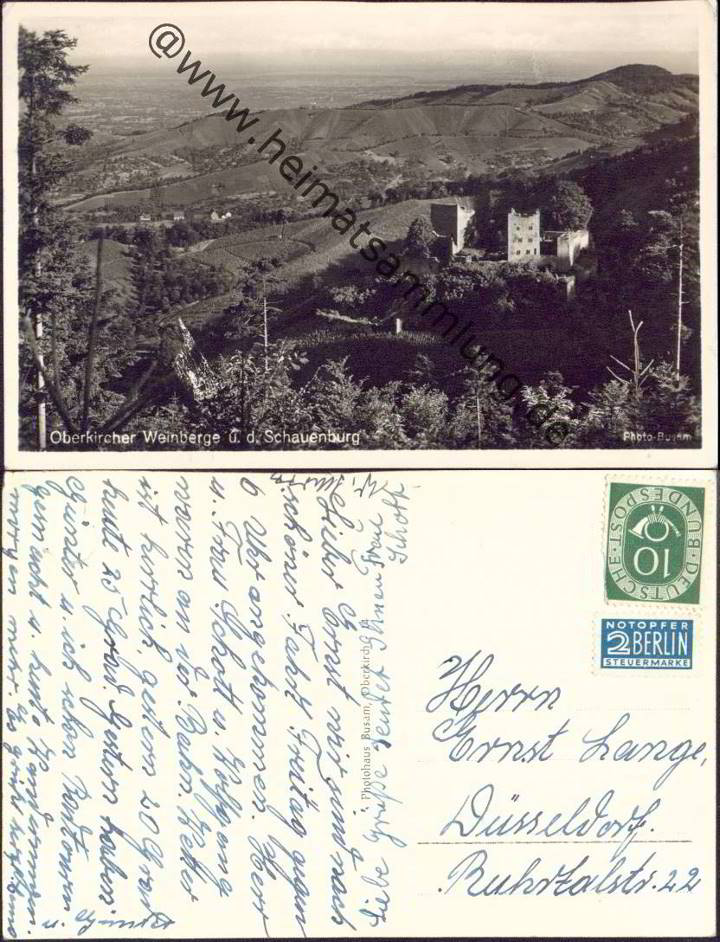 @www.heimatsammlung.de
Oberkircher Weinberge u. d. Schauenburg
Photo-Busam
Lieber Ernst wir sind nach
schöner Fahrt Freitag gegen
6 Uhr angekommen. Herr
u. Frau Schott u. Wolfgang
waren an der Bahn. Wetter
ist herrlich, gestern 20 Grad
heute 25 Grad. Gestern haben
Günter u. ich schon Radtouren
gemacht u. heute wandern
Liebe Grüße sendet Ihnen Frau
Schott
Photohaus Busam, Oberkirch
DEUTSCHE BUNDESPOST
10
NOTOPFER
2 BERLIN
STEUERMARKE
Herrn
Ernst Lange,
Düsseldorf.
Ruhrtalstr. 22